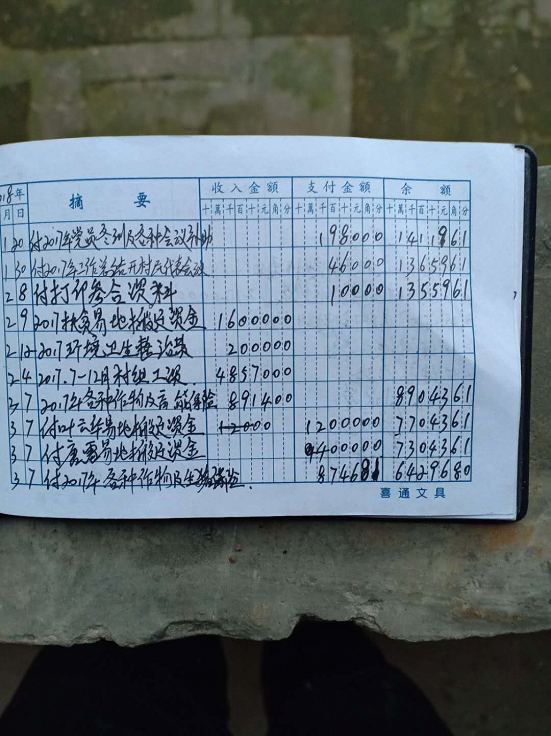 2018年 摘要 收入金额 支付金额 余额
月 日 十萬千百十元角分 十萬千百十元角分 十萬千百十元角分
1 20 付2017年党员冬训及各种会议补助 198000 1411961
1 30 付2017年工作总结开村民代表会议 46000 1365961
2 8 付打印参合资料 10000 1355961
2 9 2017扶贫易地搬迁资金 1600000
2 12 2017环境卫生整治 200000
2 4 2017.7-12月村组工资 4857000
3 7 2017年各种作物及 保险 891400 8904361
3 7 付叶 易地搬迁资金 1200000 7704361
3 7 付 易地搬迁资金 400000 7304361
3 7 付2017年各种作物及 保险 874681 6429680
喜通文具